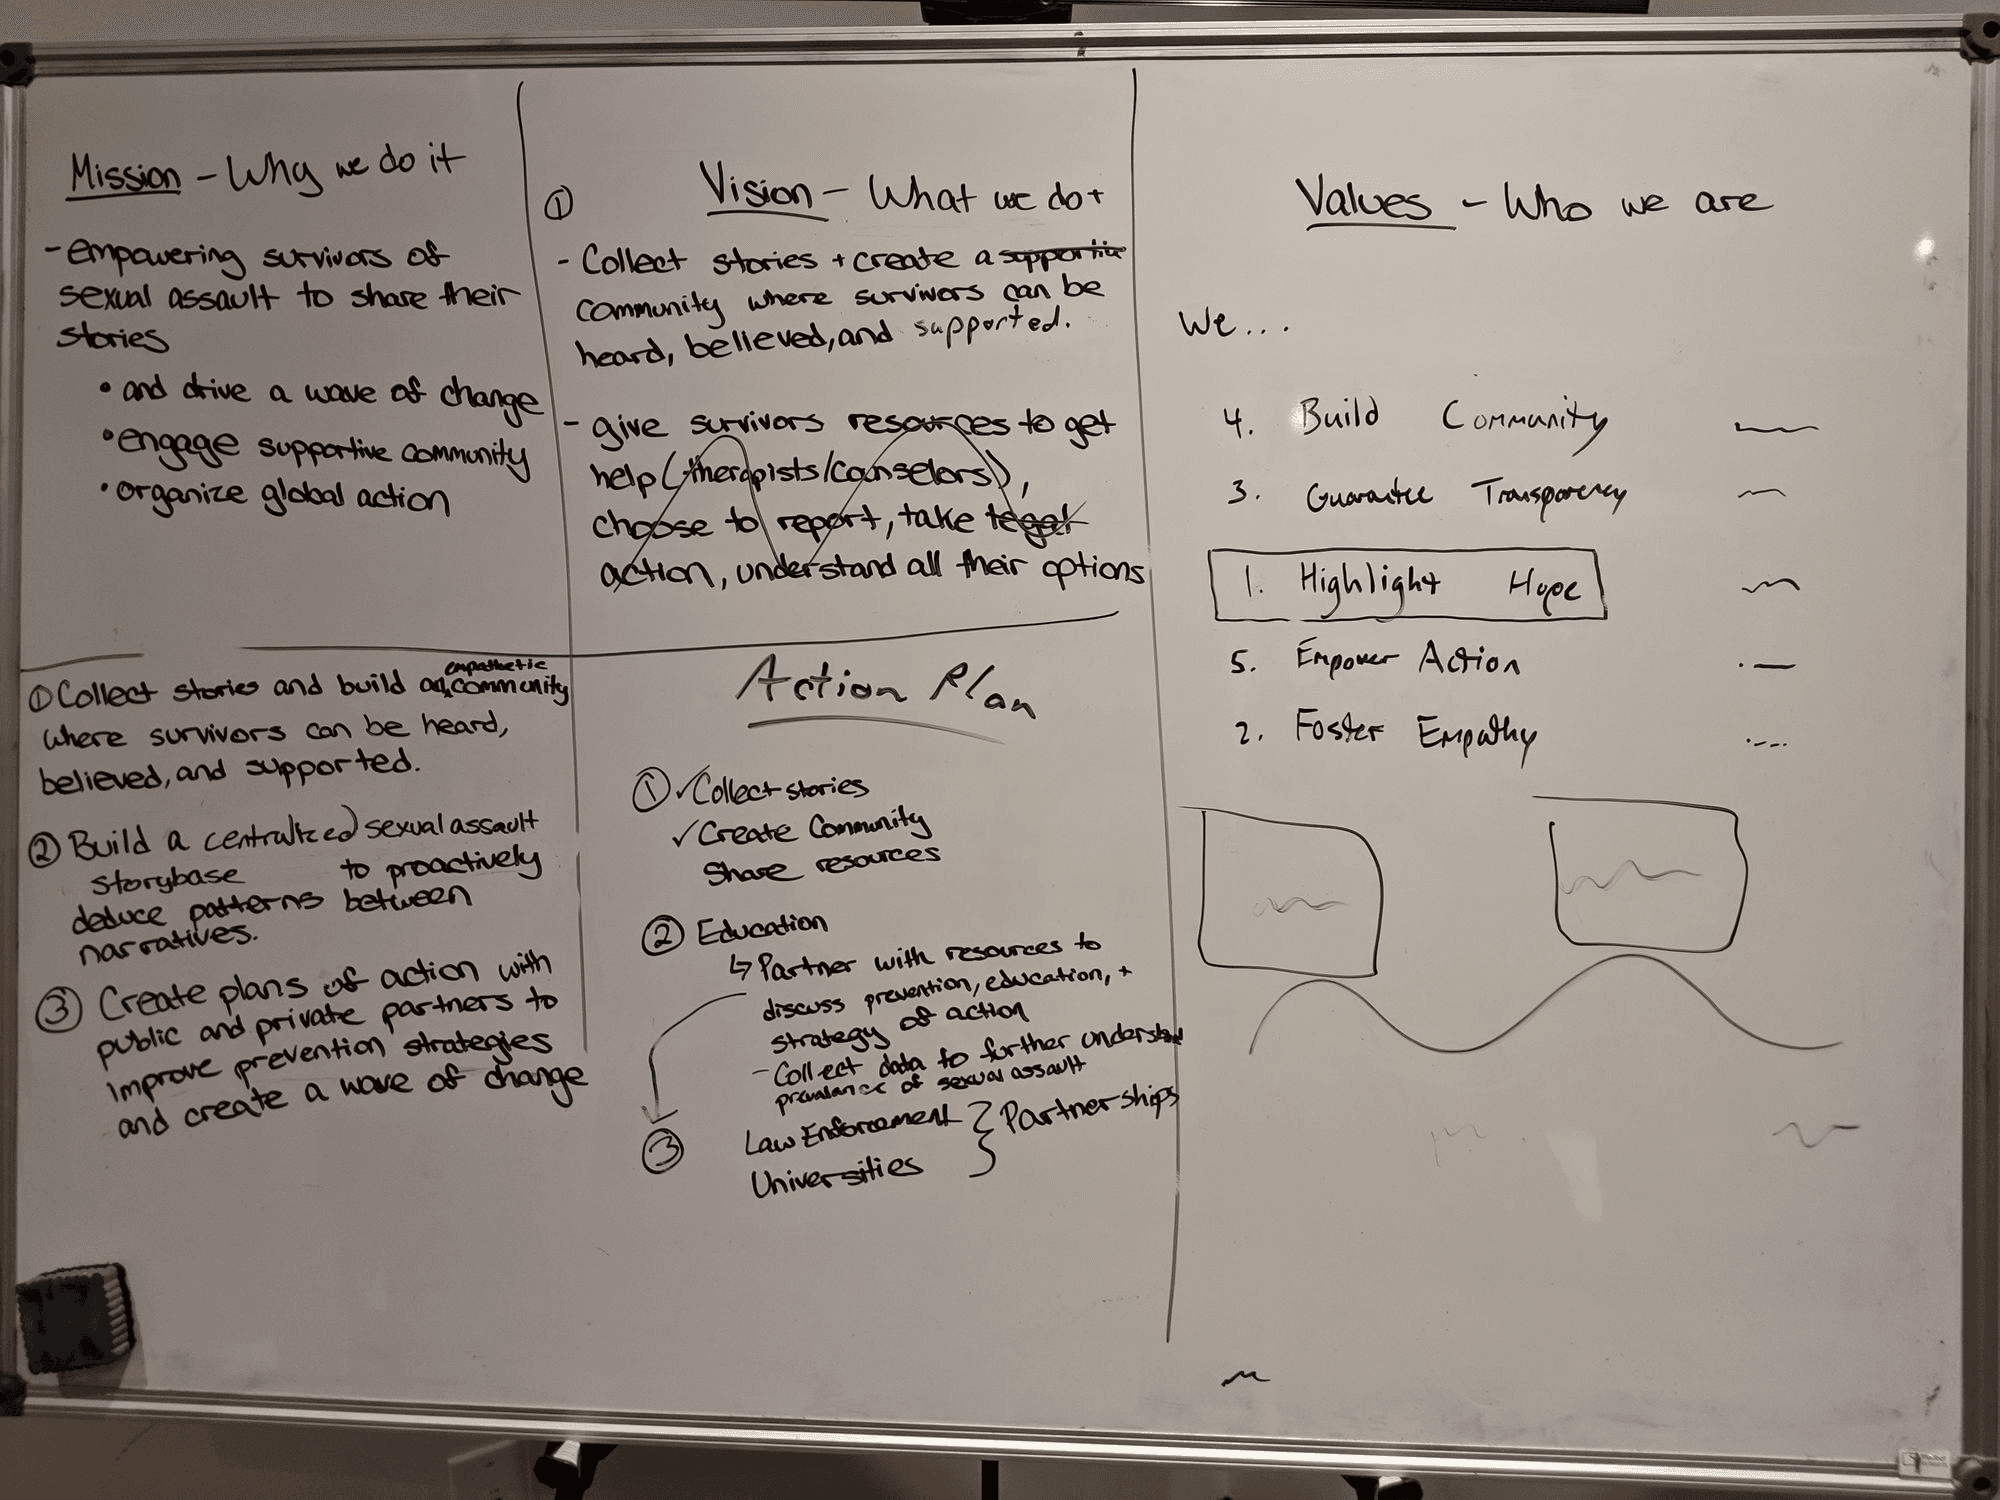 Mission - Why we do it
- empowering survivors of
sexual assault to share their
stories
• and drive a wave of change
• engage supportive community
• organize global action
① Vision - What we do +
- Collect stories + create a supportive
community where survivors can be
heard, believed, and supported.
- give survivors resources to get
help (therapists/counselors),
choose to report, take legal
action, understand all their options
Values - Who we are
We...
4. Build Community
3. Guarantee Transparency
1. Highlight Hope
5. Empower Action
2. Foster Empathy
empathetic
① Collect stories and build an community
where survivors can be heard,
believed, and supported.
② Build a centralized sexual assault
storybase to proactively
deduce patterns between
narratives.
③ Create plans of action with
public and private partners to
improve prevention strategies
and create a wave of change
Action Plan
① ✓ Collect stories
✓ Create Community
Share resources
② Education
↳ Partner with resources to
discuss prevention, education, +
strategy of action
- Collect data to further understand
prevalance of sexual assault
③ Law Enforcement } Partnerships
Universities